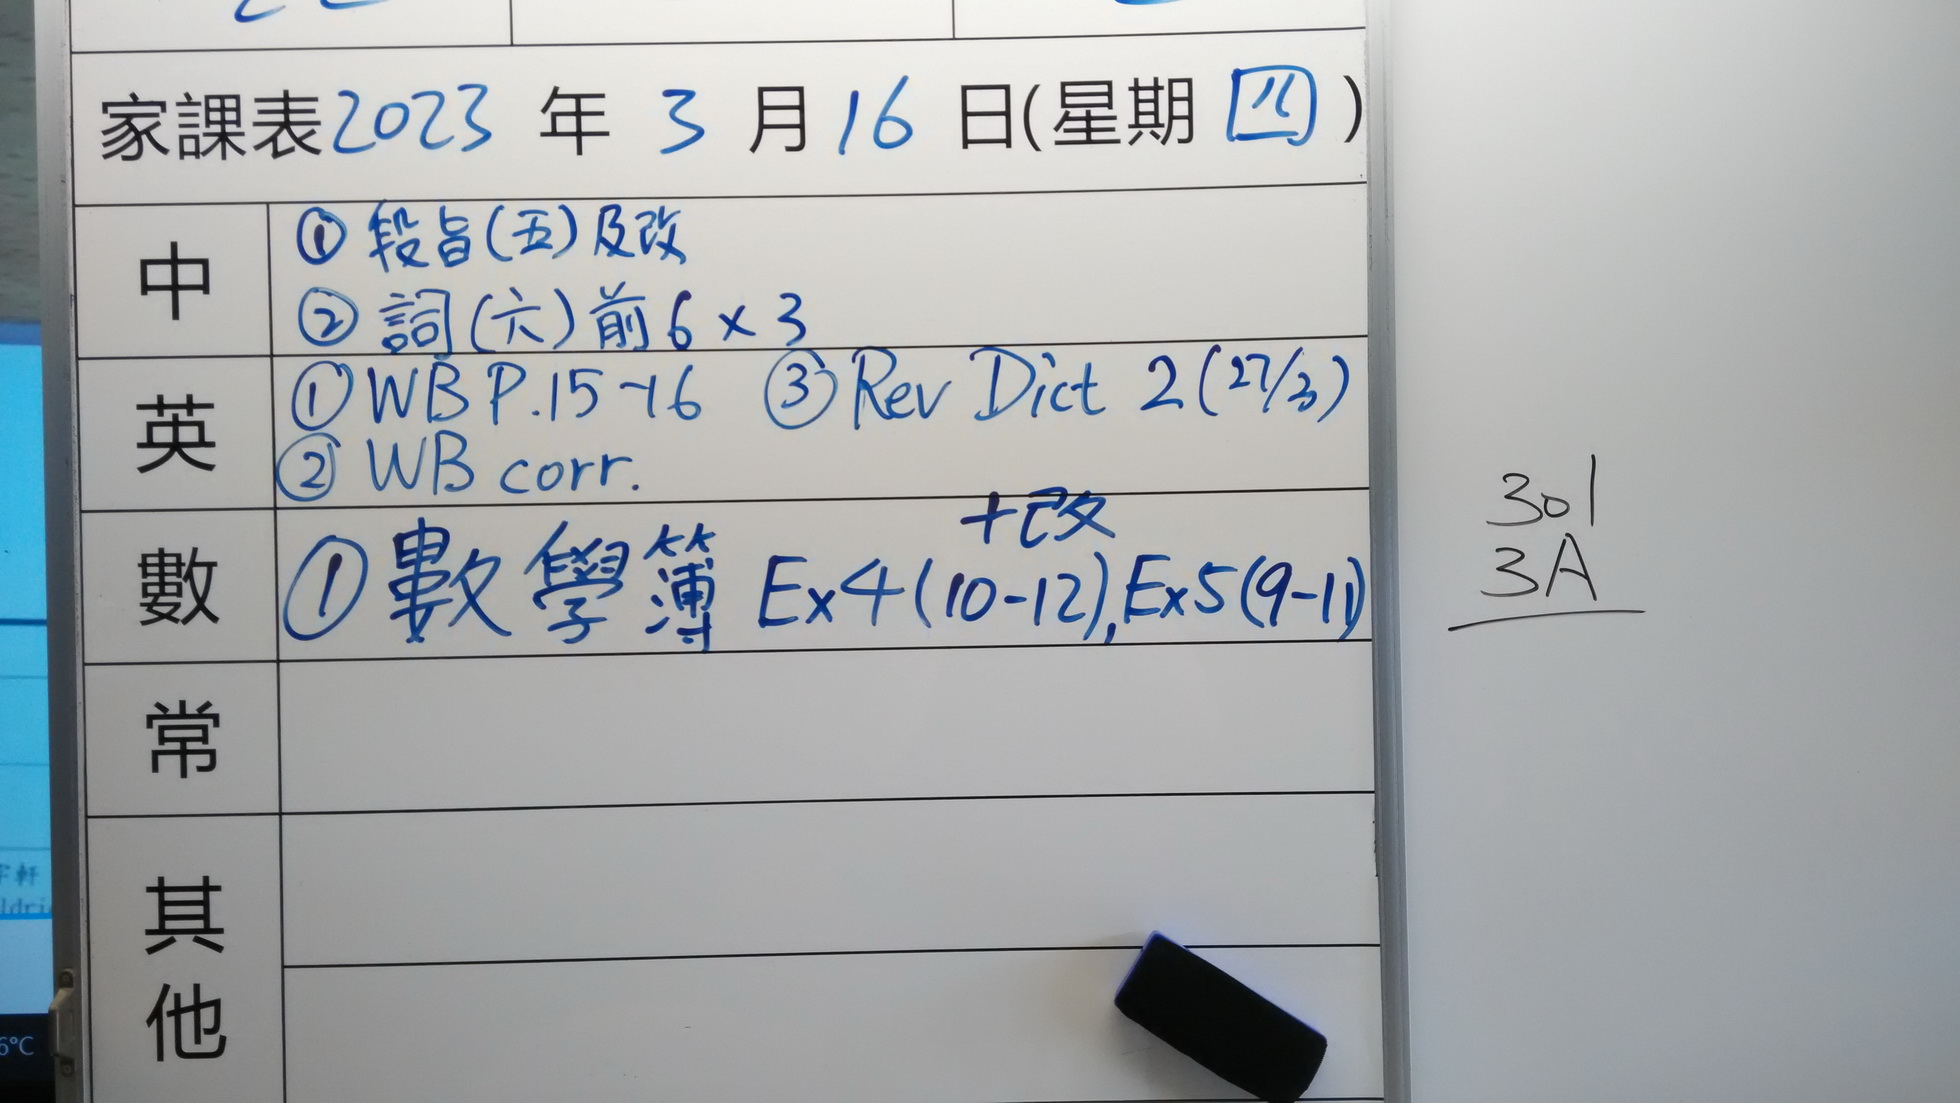 家課表2023 年 3 月 16 日(星期 四)
中
① 段旨(五)及改
② 詞(六)前6 x 3
英
① WB P.15-16 ③ Rev Dict 2 (27/3)
② WB corr.
數
+改
① 數學簿 Ex4(10-12), Ex5(9-11)
常
其他
301
3A
軒
6°C